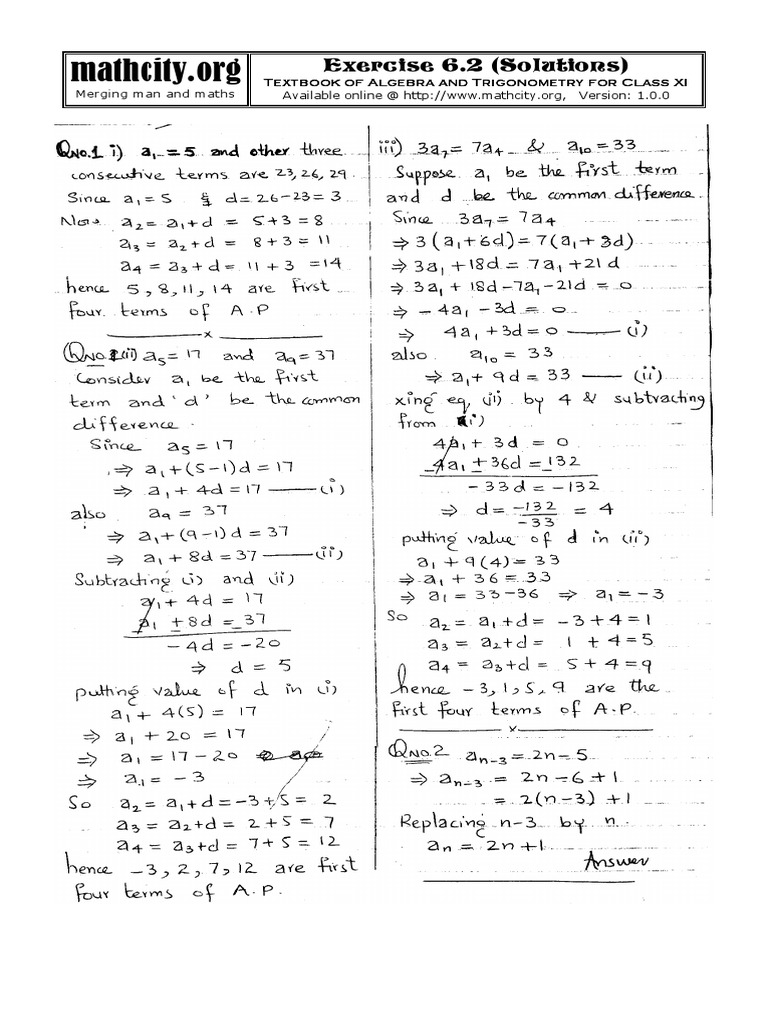 mathcity.org
Merging man and maths
Exercise 6.2 (Solutions)
TEXTBOOK OF ALGEBRA AND TRIGONOMETRY FOR CLASS XI
Available online @ http://www.mathcity.org, Version: 1.0.0
QNO.1 i) a₁ = 5 and other three
consecutive terms are 23, 26, 29.
Since a₁ = 5 & d = 26-23 = 3
Now a₂ = a₁+d = 5+3 = 8
a₃ = a₂+d = 8+3 = 11
a₄ = a₃+d = 11+3 = 14
hence 5, 8, 11, 14 are first
four terms of A.P
x
QNO.1(ii) a₅ = 17 and a₉ = 37
Consider a₁ be the first
term and 'd' be the common
difference.
Since a₅ = 17
⇒ a₁+(5-1)d = 17
⇒ a₁ + 4d = 17 —— (i)
also a₉ = 37
⇒ a₁+(9-1)d = 37
⇒ a₁+8d = 37 —— (ii)
Subtracting (i) and (ii)
a₁ + 4d = 17
a₁ + 8d = 37
- - -
-4d = -20
⇒ d = 5
putting value of d in (i)
a₁ + 4(5) = 17
⇒ a₁ + 20 = 17
⇒ a₁ = 17-20
⇒ a₁ = -3
So a₂ = a₁+d = -3+5 = 2
a₃ = a₂+d = 2+5 = 7
a₄ = a₃+d = 7+5 = 12
hence -3, 2, 7, 12 are first
four terms of A.P.
iii) 3a₇ = 7a₄ & a₁₀ = 33
Suppose a₁ be the first term
and d be the common difference.
Since 3a₇ = 7a₄
⇒ 3(a₁+6d) = 7(a₁+3d)
⇒ 3a₁ +18d = 7a₁+21d
⇒ 3a₁ + 18d-7a₁-21d = 0
⇒ -4a₁ -3d = 0
⇒ 4a₁+3d = 0 —— (i)
also a₁₀ = 33
⇒ a₁+ 9d = 33 —— (ii)
xing eq. (ii) by 4 & subtracting
from (i)
4a₁ + 3d = 0
4a₁ + 36d = 132
- - -
-33d = -132
⇒ d = -132/-33 = 4
putting value of d in (ii)
a₁ + 9(4) = 33
⇒ a₁ + 36 = 33
⇒ a₁ = 33-36 ⇒ a₁ = -3
So a₂ = a₁+d = -3+4 = 1
a₃ = a₂+d = 1+4 = 5
a₄ = a₃+d = 5+4 = 9
hence -3, 1, 5, 9 are the
first four terms of A.P.
x
QNO.2 aₙ₋₃ = 2n-5
⇒ aₙ₋₃ = 2n-6+1
= 2(n-3)+1
Replacing n-3 by n.
aₙ = 2n+1
Answer